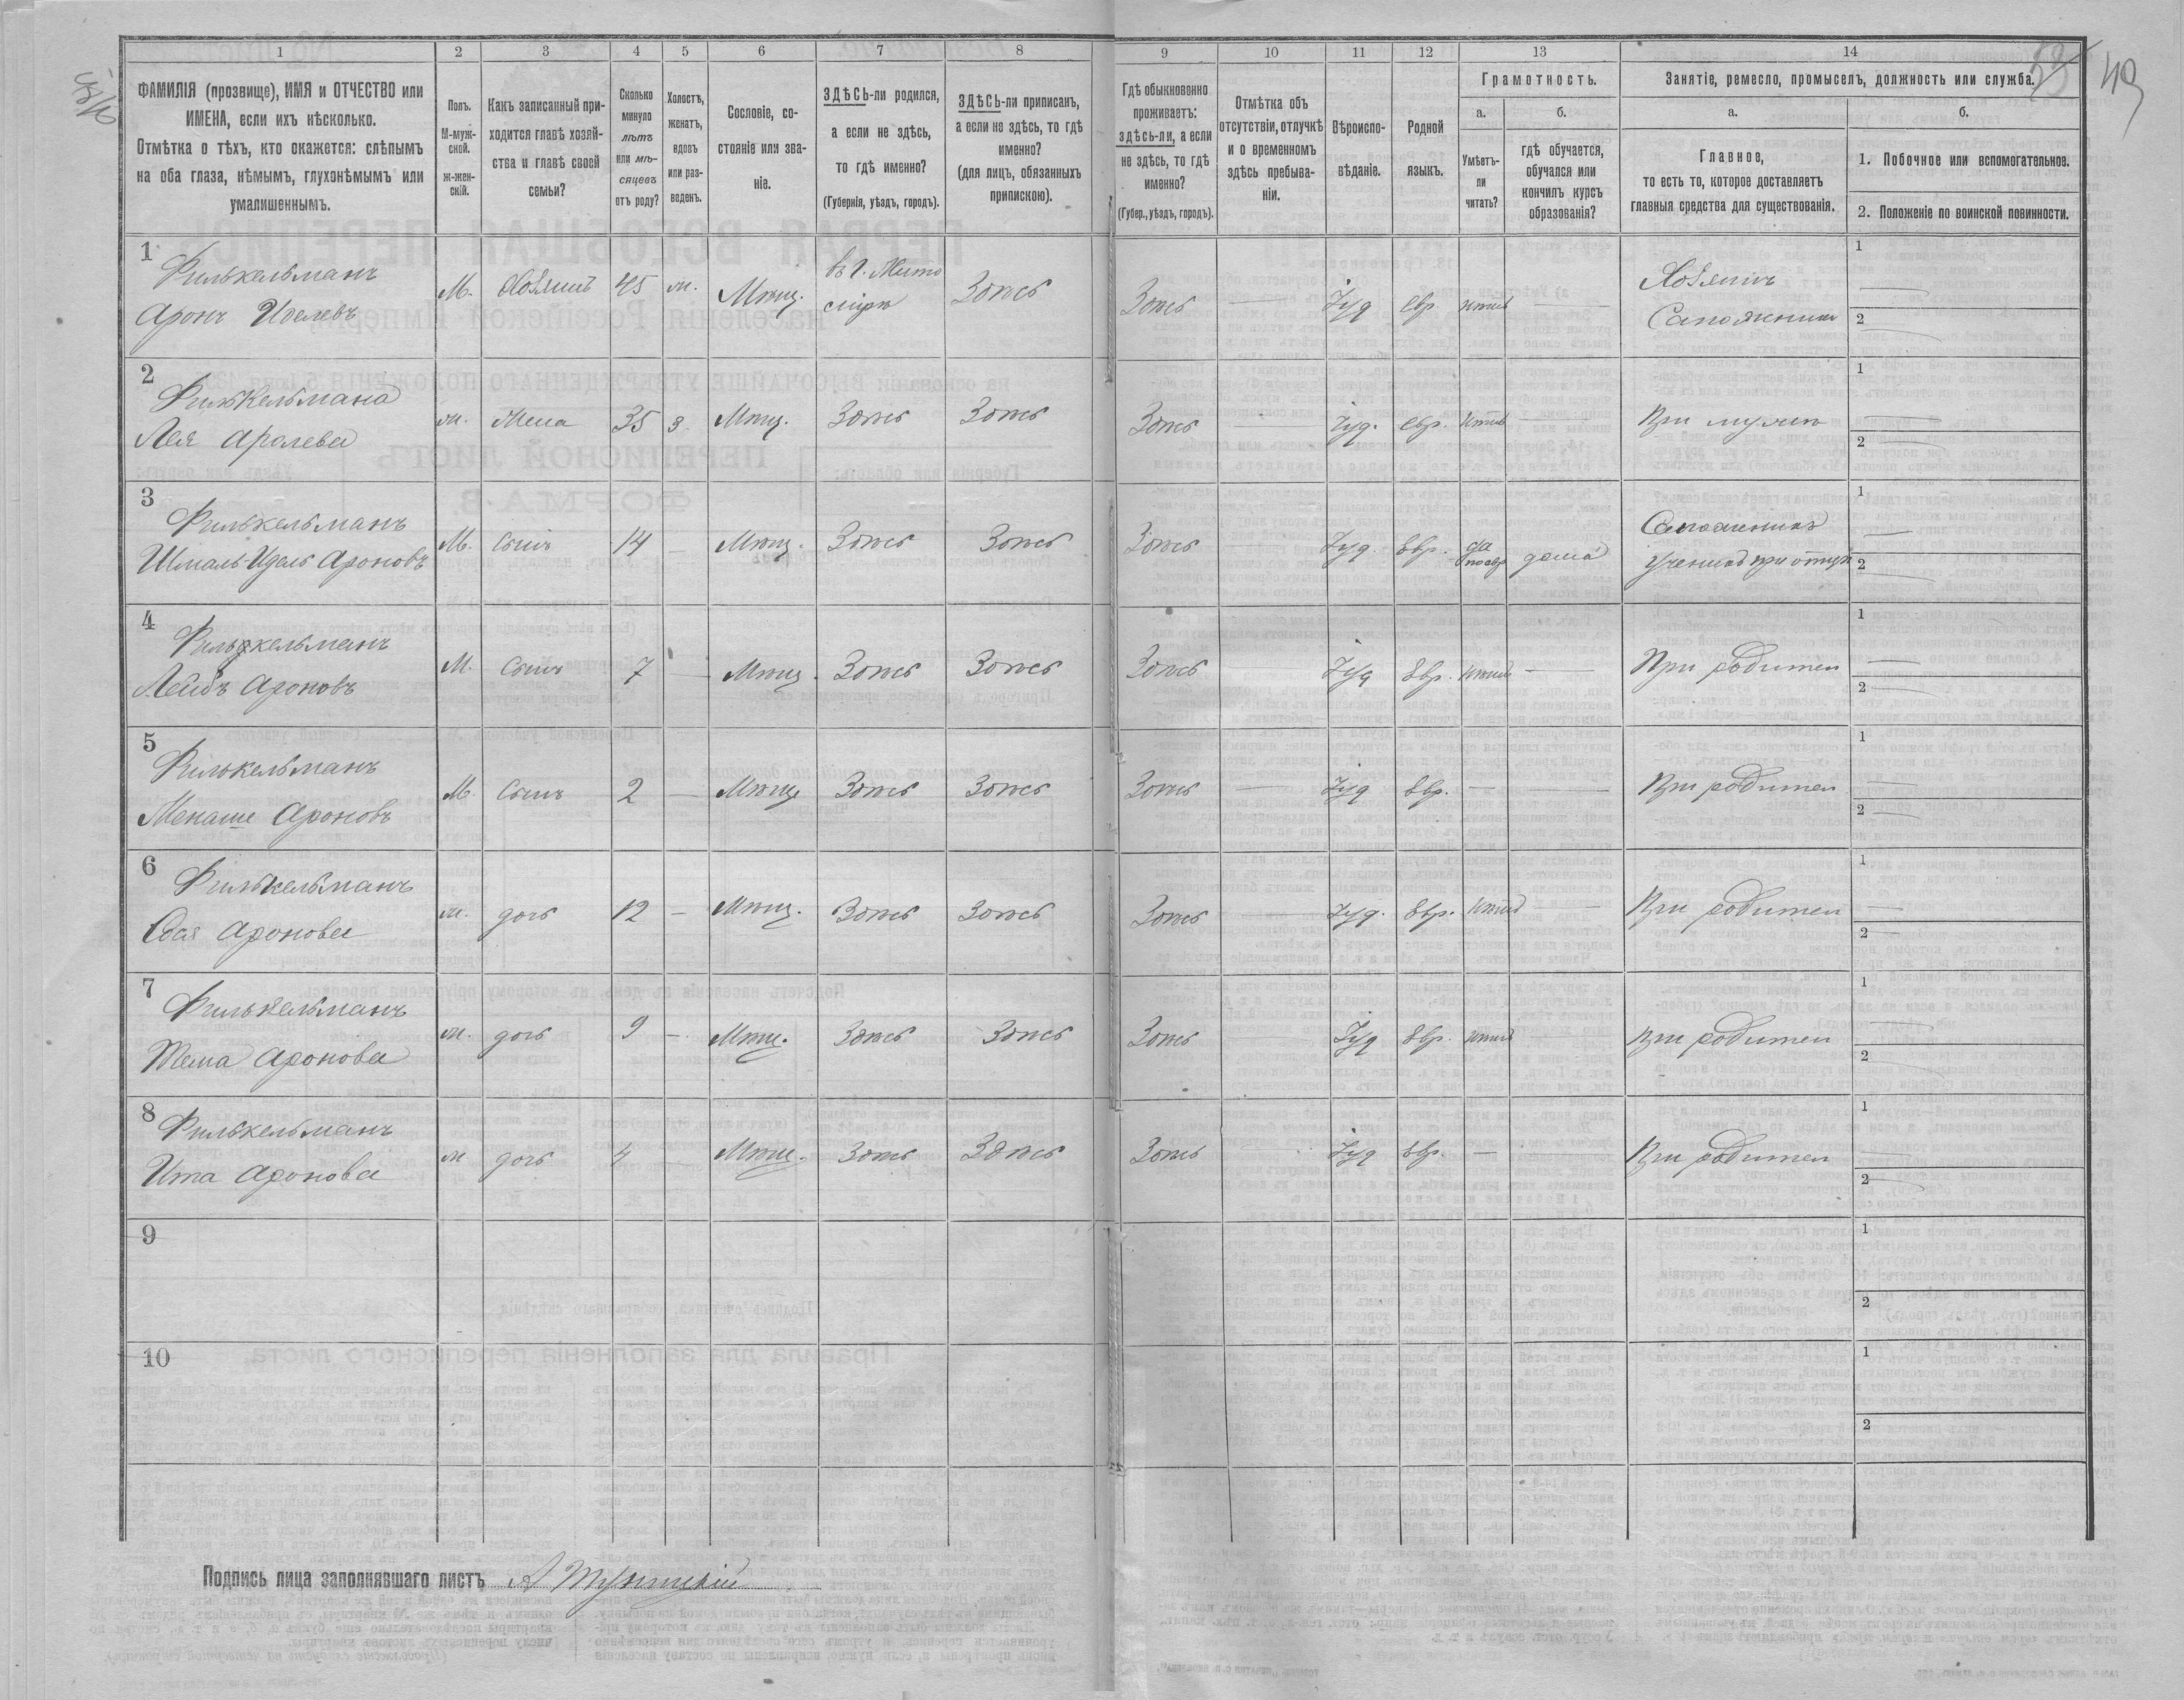 1 2 3 4 5 6 7 8 9 10 11 12 13 14
ФАМИЛІЯ (прозвище), ИМЯ и ОТЧЕСТВО или
ИМЕНА, если ихъ нѣсколько.
Отмѣтка о тѣхъ, кто окажется: слѣпымъ
на оба глаза, нѣмымъ, глухонѣмымъ или
умалишеннымъ.
Полъ.
М-муж-
ской.
ж-жен-
скій.
Какъ записанный при-
ходится главѣ хозяй-
ства и главѣ своей
семьи?
Сколько
минуло
лѣтъ
или мѣ-
сяцевъ
отъ роду?
Холостъ,
женатъ,
вдовъ
или раз-
веденъ.
Сословіе, со-
стояніе или зва-
ніе.
ЗДѢСЬ-ли родился,
а если не здѣсь,
то гдѣ именно?
(Губернія, уѣздъ, городъ).
ЗДѢСЬ-ли приписанъ,
а если не здѣсь, то гдѣ
именно?
(для лицъ, обязанныхъ
припискою).
Гдѣ обыкновенно
проживаетъ:
здѣсь-ли, а если
не здѣсь, то гдѣ
именно?
(Губер., уѣздъ, городъ).
Отмѣтка объ
отсутствіи, отлучкѣ
и о временномъ
здѣсь пребыва-
ніи.
Вѣроиспо-
вѣданіе.
Родной
языкъ.
Грамотность.
а.
Умѣетъ-
ли
читать?
б.
гдѣ обучается,
обучался или
кончилъ курсъ
образованія?
Занятіе, ремесло, промыселъ, должность или служба.
а.
Главное,
то есть то, которое доставляетъ
главныя средства для существованія.
б.
1. Побочное или вспомогательное.
2. Положеніе по воинской повинности.
49
1 Филькельманъ
Аронъ Иделевъ
М. Хозяинъ 45 ж. Мѣщ. въ г. Жито
мірѣ Здѣсь Здѣсь — Іуд евр нѣтъ — Хозяинъ
Сапожникъ 1 — 2 —
2 Филькельмана
Лея Аролева
ж. Жена 35 З. Мѣщ. Здѣсь Здѣсь Здѣсь — Іуд. евр. нѣтъ — При мужѣ 1 — 2 —
3 Филькельманъ
Шмаль-Идель Ароновъ
М. Сынъ 14 — Мѣщ. Здѣсь Здѣсь Здѣсь — Іуд. Евр. да
по евр дома Сапожникъ
ученикъ при отцѣ 1 — 2 —
4 Филькельманъ
Лейбъ Ароновъ
М. Сынъ 7 — Мѣщ. Здѣсь Здѣсь Здѣсь — Іуд Евр. нѣтъ — При родител 1 — 2 —
5 Филькельманъ
Менаше Ароновъ
М. Сынъ 2 — Мѣщ Здѣсь Здѣсь Здѣсь — Іуд Евр. — — При родител 1 — 2 —
6 Филькельманъ
Аронова
ж. дочь 12 — Мѣщ. Здѣсь Здѣсь Здѣсь — Іуд. Евр. нѣтъ — При родител 1 — 2 —
7 Филькельманъ
Тема Аронова
ж. дочь 9 — Мѣщ. Здѣсь Здѣсь Здѣсь Іуд Евр. нѣтъ — При родител 1 — 2 —
8 Филькельманъ
Ита Аронова
ж дочь 4 — Мѣщ. Здѣсь Здѣсь Здѣсь Іуд Евр. — При родител 1 — 2 —
9 1 2
10 1 2
Подпись лица заполнявшаго листъ